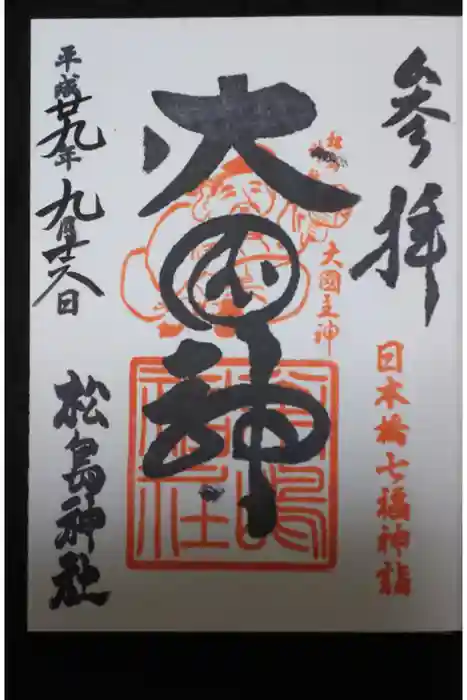 参拝
日本橋七福神詣
大國主神
大国神
松島神社
平成廿九年九月十六日
松島神社